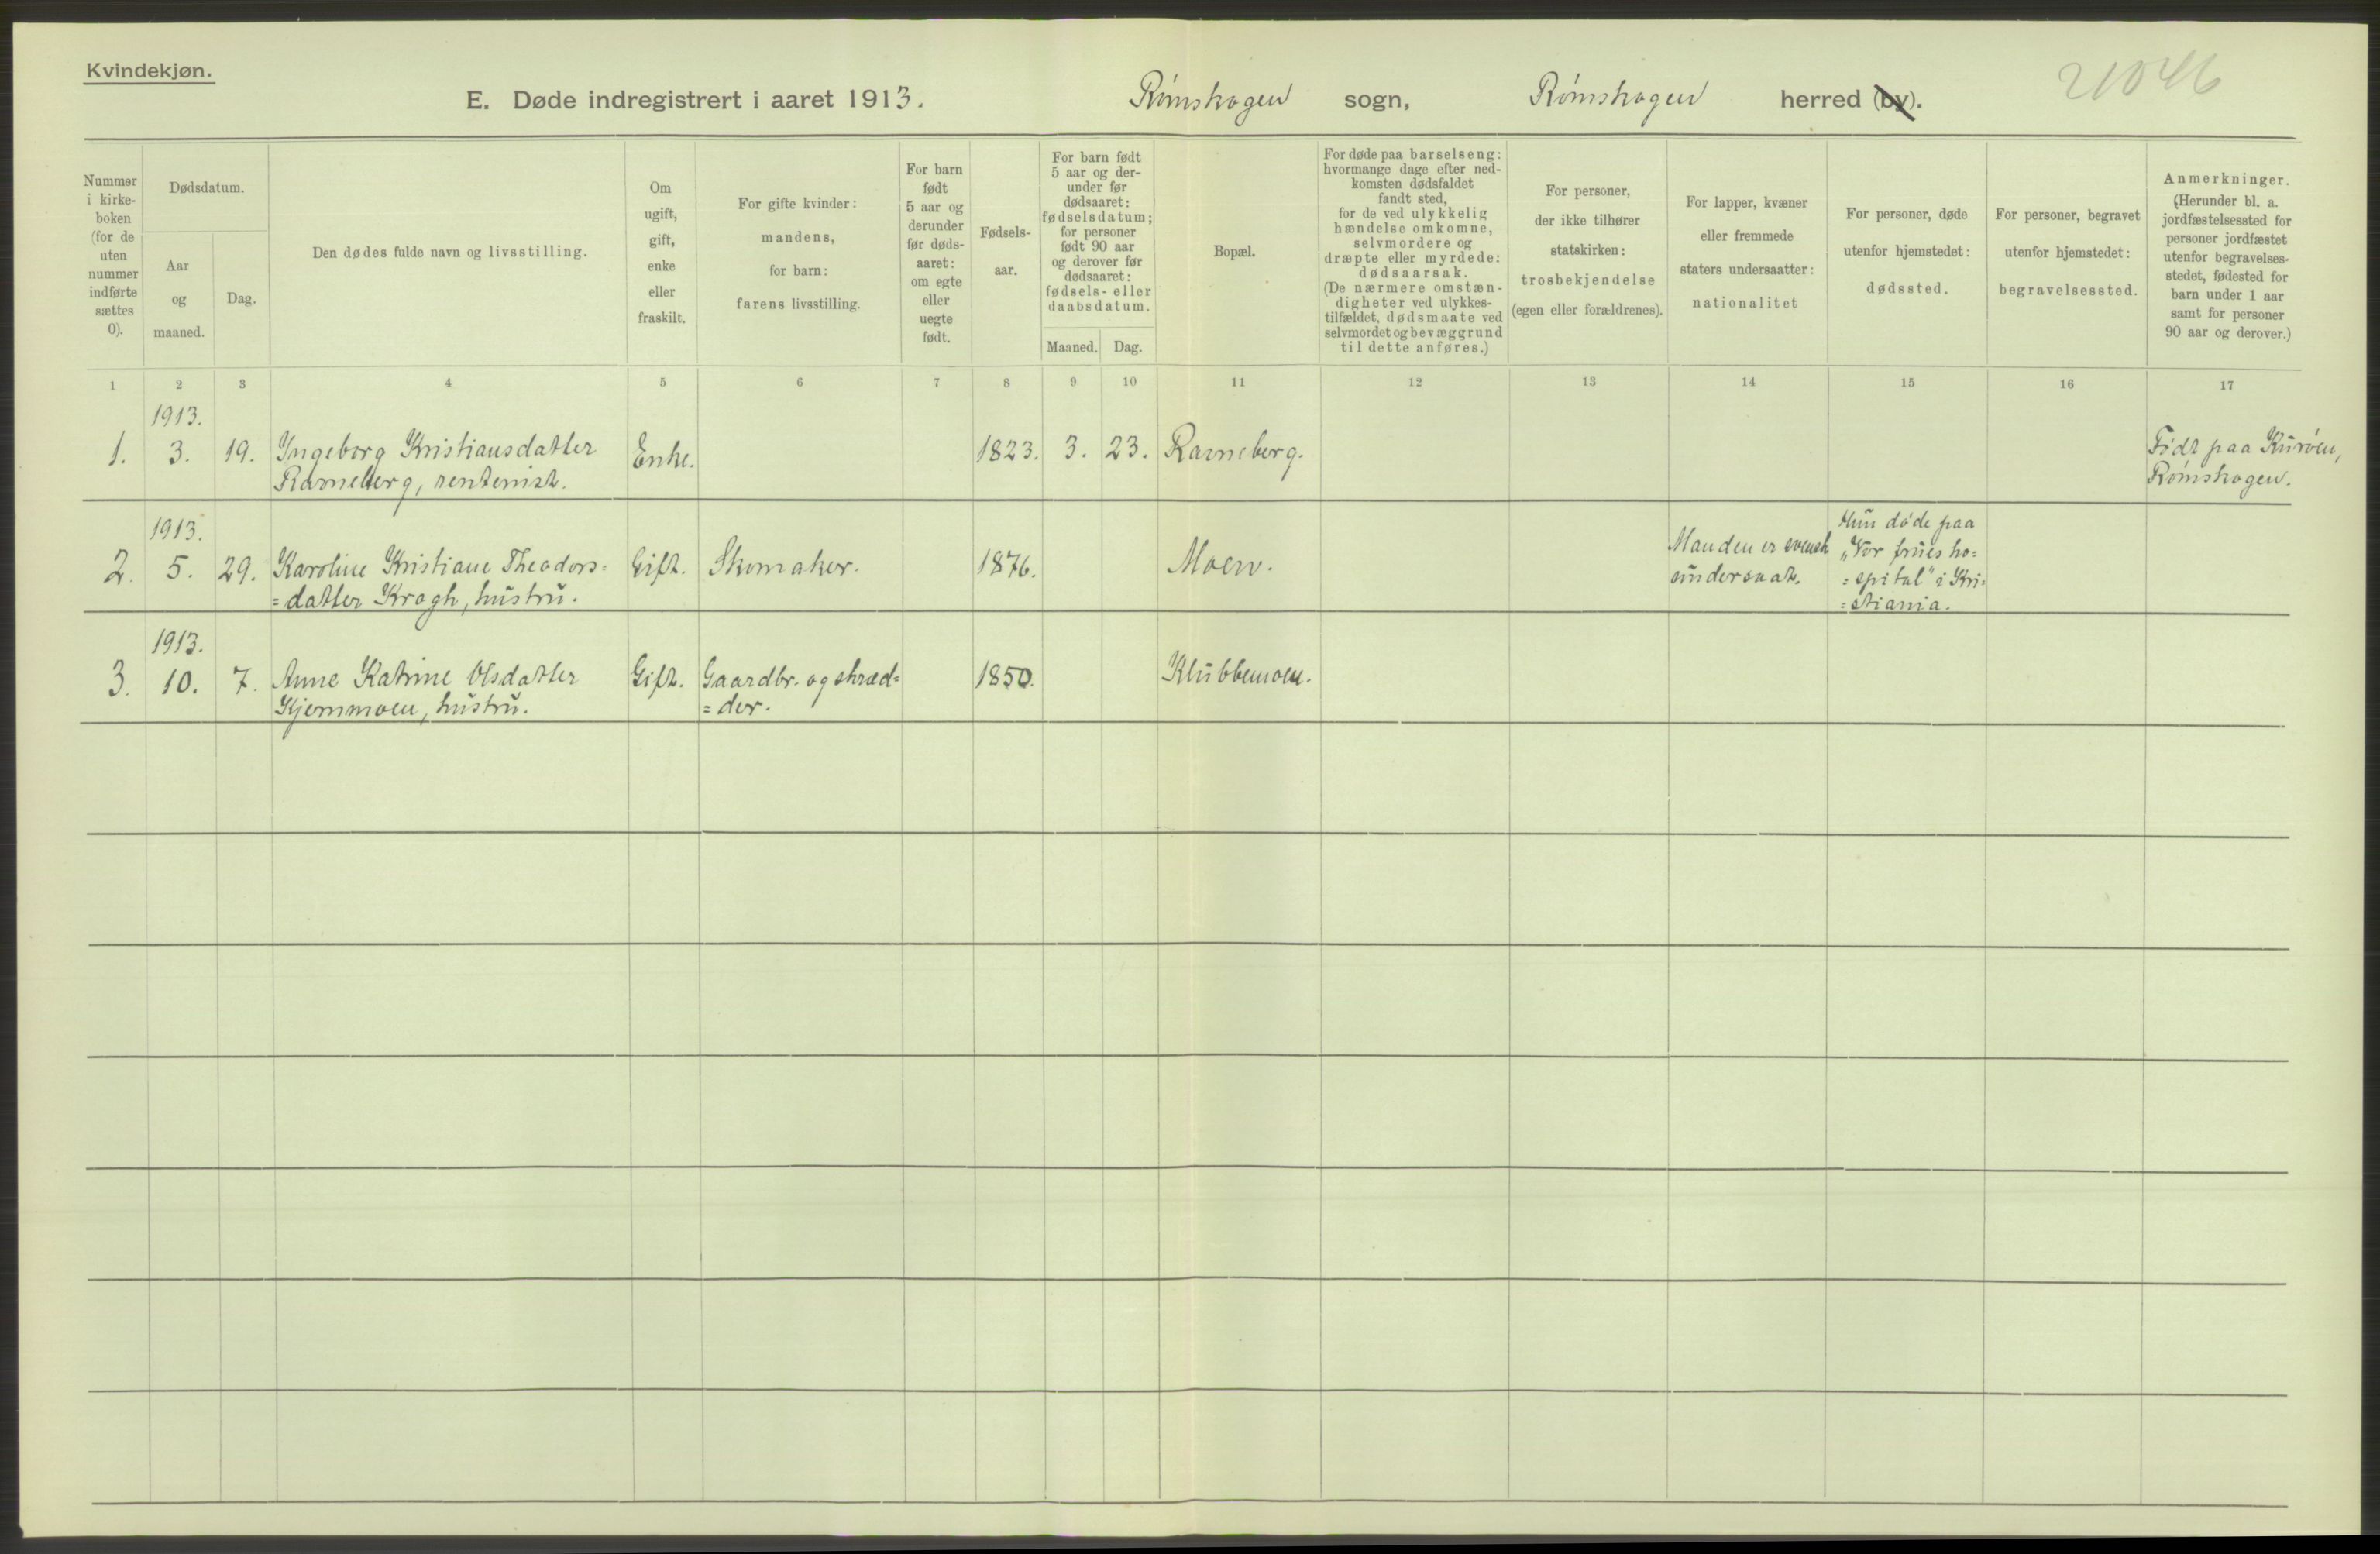 Kvindekjøn.
E. Døde indregistrert i aaret 1913. Rømskogen sogn, Rømskogen herred (by).
21046
Nummer
i kirke-
boken
(for de
uten
nummer
indførte
sættes
0).
Dødsdatum.
Aar
og
maaned.
Dag.
Den dødes fulde navn og livsstilling.
Om
ugift,
gift,
enke
eller
fraskilt.
For gifte kvinder:
mandens,
for barn:
farens livsstilling.
For barn
født
5 aar og
derunder
før døds-
aaret:
om egte
eller
uegte
født.
Fødsels-
aar.
For barn født
5 aar og der-
under før
dødsaaret:
fødselsdatum;
for personer
født 90 aar
og derover før
dødsaaret:
fødsels- eller
daabsdatum.
Maaned. Dag.
Bopæl.
For døde paa barselseng:
hvormange dage efter ned-
komsten dødsfaldet
fandt sted,
for de ved ulykkelig
hændelse omkomne,
selvmordere og
dræpte eller myrdede:
dødsaarsak.
(De nærmere omstæn-
digheter ved ulykkes-
tilfældet, dødsmaate ved
selvmordet og bevæggrund
til dette anføres.)
For personer,
der ikke tilhører
statskirken:
trosbekjendelse
(egen eller forældrenes).
For lapper, kvæner
eller fremmede
staters undersaatter:
nationalitet
For personer, døde
utenfor hjemstedet:
dødssted.
For personer, begravet
utenfor hjemstedet:
begravelsessted.
Anmerkninger.
(Herunder bl. a.
jordfæstelsessted for
personer jordfæstet
utenfor begravelses-
stedet, fødested for
barn under 1 aar
samt for personer
90 aar og derover.)
1 2 3 4 5 6 7 8 9 10 11 12 13 14 15 16 17
1913.
1. 3. 19. Ingeborg Kristiansdatter Enke. 1823. 3. 23. Ravneberg. Født paa Kurøen,
Ravneberg, rentenist. Rømskogen.
1913. Hun døde paa
2. 5. 29. Karoline Kristiane Theodors= Gift. Skomaker. 1876. Moen. Manden er svensk „Vor frues ho=
=datter Kragh, hustru. undersaat. =spital" i Kri=
=stiania.
1913.
3. 10. 7. Anne Katrine Olsdatter Gift. Gaardbr. og skræd= 1850. Klubbemoen.
Kjernmoen, hustru. =der.